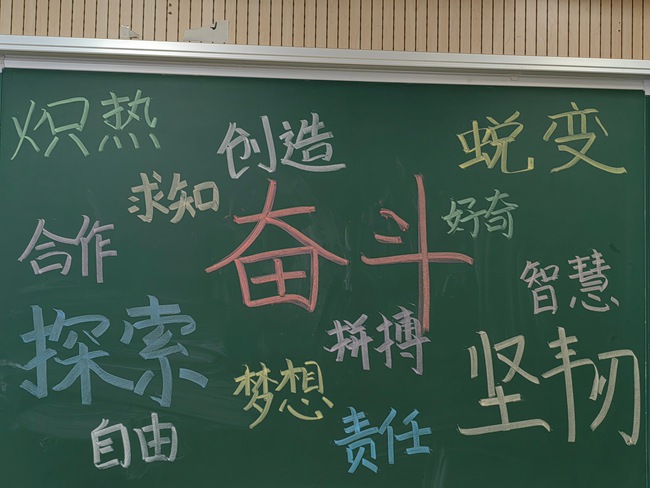 炽热
创造
蜕变
求知
奋斗
好奇
合作
智慧
探索
拼搏
坚韧
梦想
自由
责任